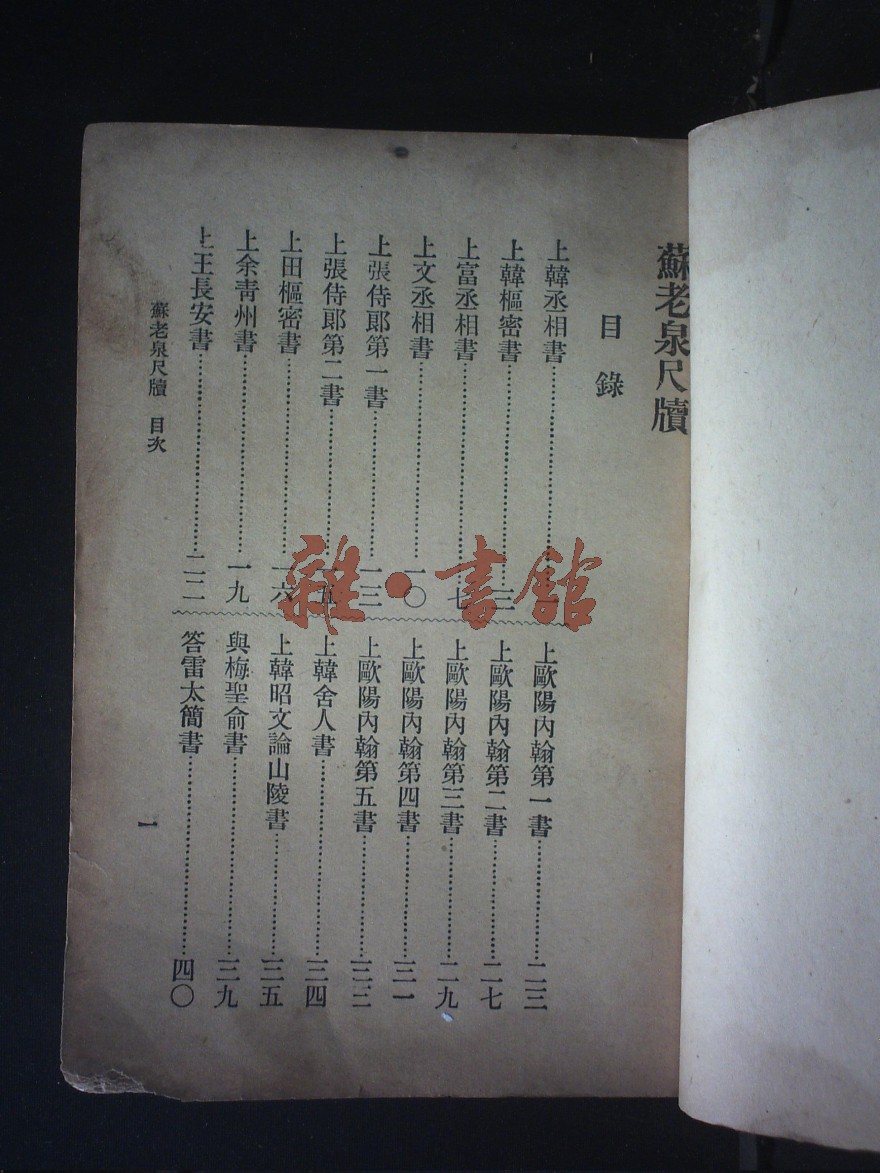 蘇老泉尺牘
目錄
上韓丞相書
上韓樞密書
上富丞相書……七
上文丞相書……一〇
上張侍郎第一書……一三
上張侍郎第二書……一五
上田樞密書……一六
上余靑州書……一九
上王長安書……二二
上歐陽內翰第一書……二三
上歐陽內翰第二書……二七
上歐陽內翰第三書……二九
上歐陽內翰第四書……三一
上歐陽內翰第五書……三三
上韓舍人書……三四
上韓昭文論山陵書……三五
與梅聖俞書……三九
答雷太簡書……四〇
蘇老泉尺牘 目次
一
雜·書館